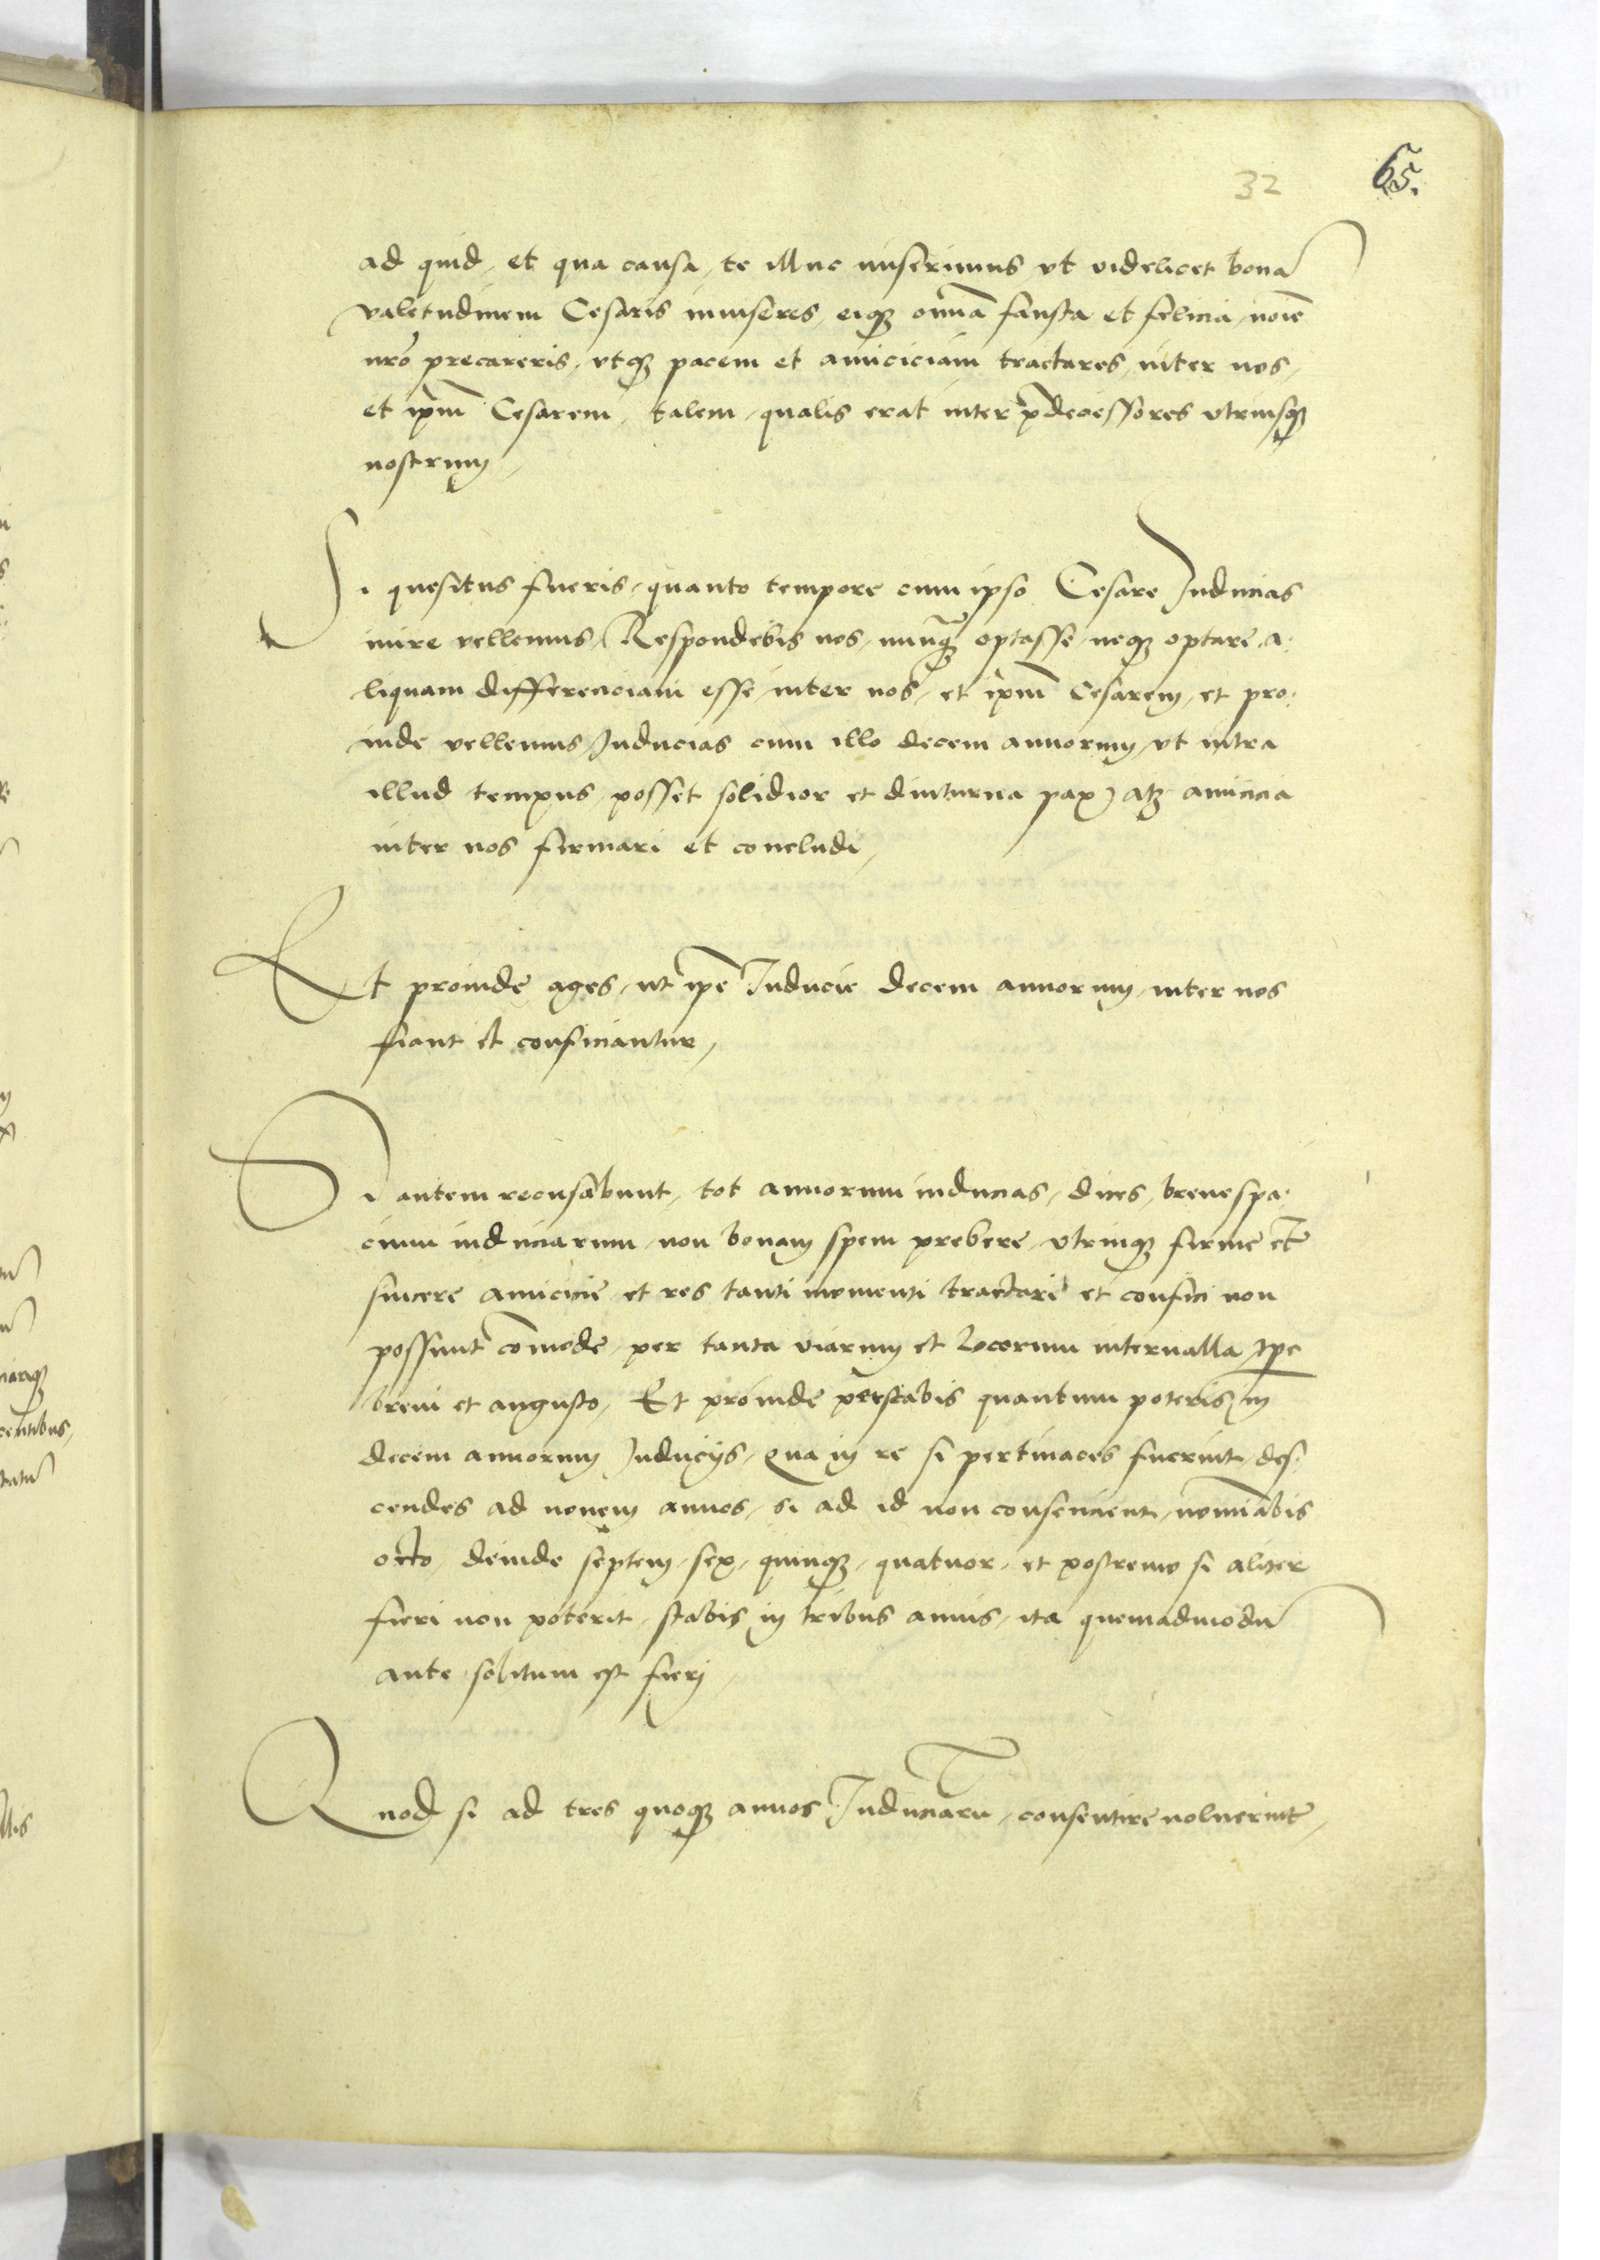 32 65.
ad quid, et qua causa, te illuc miserimus vt videlicet bonā
valetudinem Cesaris inuiseres, eiqꝫ om̄ia fausta et felicia, noīe
nr̄o precareris, vtqꝫ pacem et amiciciam tractares, inter nos,
et ip̄m Cesarem, talem, qualis erat inter p̄decessores vtriusqꝫ
nostrum,
Si quesitus fueris, quanto tempore cum ipso Cesare Inducias
inire vellemus, Respondebis nos, nunqꝫ̄ optasse, neqꝫ optare, a-
liquam differenciam esse, inter nos, et ip̄m Cesarem, et pro-
inde vellemus, Inducias cum illo decem annorum, vt intra
illud tempus, posset solidior et diuturna pax) atqꝫ amicicia
inter nos firmari et concludi,
Et proinde ages, ut ip̄e Inducie decem annorum, inter nos
fiant et conficiantur,
Si autem recusabunt, tot annorum inducias, dices, breue spa-
cium induciarum, non bonam spem prebere, vtrinqꝫ firme et
sincere amicicie, et res tanti momenti tractari et confici non
possunt com̄ode, per tanta viarum et Locorum interualla, tp̄e
breui et angusto, Et proinde perstabis quantum poteris, in
decem annorum Inducijs, Qua in re si pertinaces fuerint, des-
cendes ad nouem annos, si ad id non consencient, nominabis
octo, deinde septem, sex, quinqꝫ, quatuor, et postremo si aliter
fieri non poterit, stabis in tribus annis, ita quemadmodū
ante solitum est fieri,
Quod si ad tres quoqꝫ annos Induciarū, consentire noluerint,